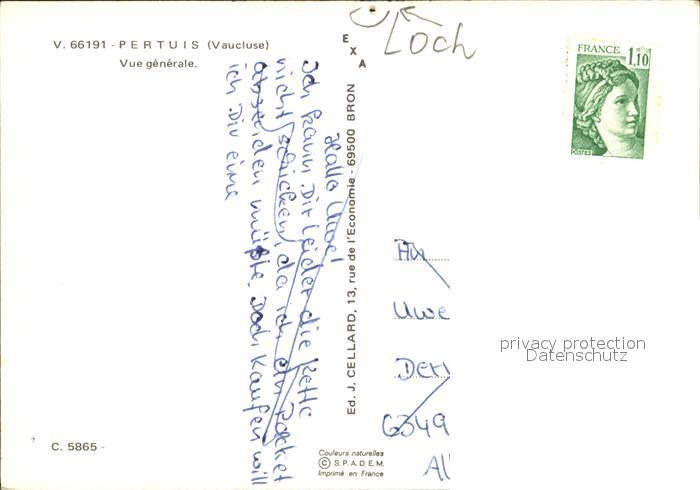 V. 66191 - PERTUIS (Vaucluse)
Vue générale.
E
X
A
Loch
FRANCE
1,10
POSTES
Hallo Uwe!
Ich kann Dir leider die Kette
nicht schicken, da ich ein Packet
absenden müßte. Doch kaufen will
ich Dir eine
Ed. J. CELLARD, 13, rue de l'Economie - 69500 BRON
An
Uwe
6349
privacy protection
Datenschutz
C. 5865 -
Couleurs naturelles
© S.P.A.D.E.M.
Imprimé en France